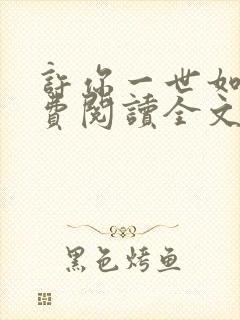 許你一世如
費閱讀全文
黑色烤鱼